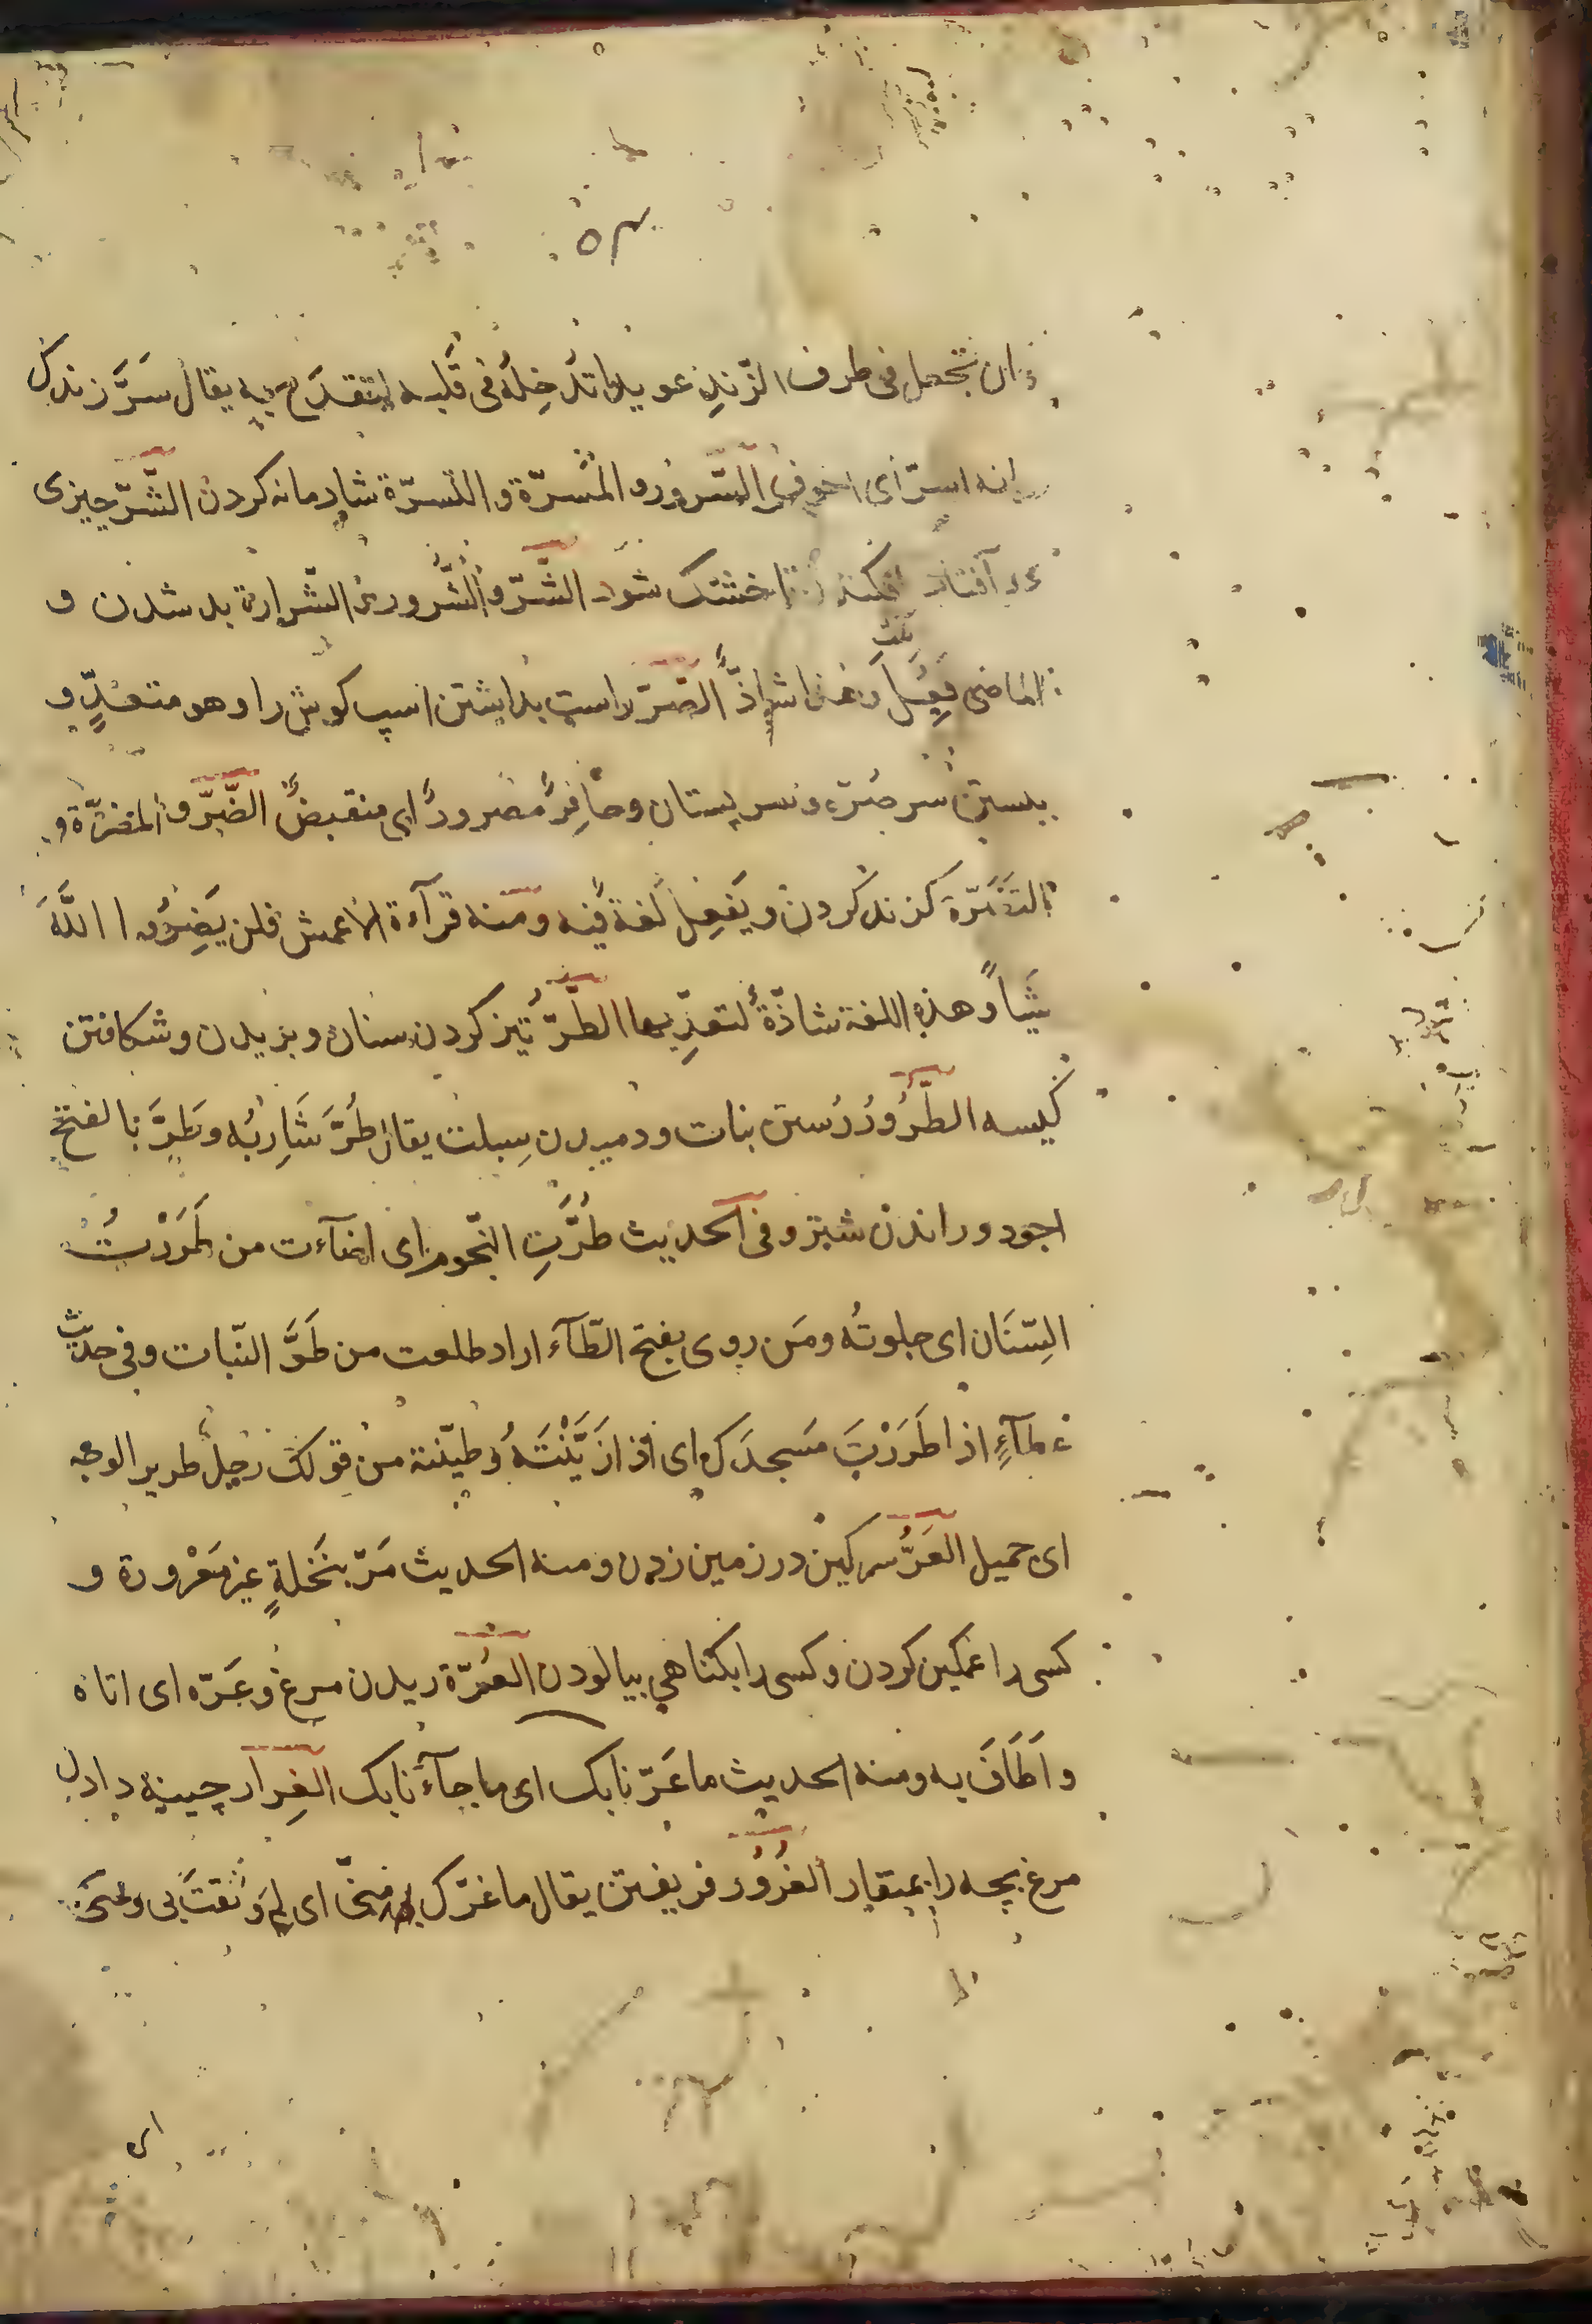 ان تجعل فى طرف الزّندِ عويدا تُدخِلُه فى قلبه لتقدَح به يقال سَرَّ زندك
فانه اسرّ اى اجوف السُّرور و المَسَرّة و التَسِرّة شادمانه كردن الشَّرّ چيزى
در آفتاب افكندن تا خشك شود الشَّرّ و الشُّرور و الشرارة بد شدن و
الماضى فَعِل و هذا شاذّ الصَّرّ راست بداشتن اسپ كوش را و هو متعدٍّ و
ببستن سر صُرّه و سر پستان و حافرٌ مصرورٌ اى منقبضٌ الضَّرّ و المضرّة و
التَضَرّة كزند كردن و يَفعِل لغة فيه و منه قرآءة الاعمش فلن يَضِرّوا اللّهَ
شيأً و هذه اللغة شاذّةٌ لتعدّيها الطَّرّ تيز كردن سنان و بريدن و شكافتن
كيسه الطُّرُور رُستن نبات و دميدن سبلت يقال طُرَّ شَارِبُه و طَرَّ بالفتح
اجود و راندن شتر و فى الحديث طُرَّتِ النّجوم اى اضآءت من طَرَرْتُ
السِّنَان اى جلوتُه و مَن روى بفتح الطّآء اراد طلعت من طَرَّ النّبات و فى حديث
عطآءٍ اذا طَرَرْتَ مَسجدَك اى اذا زَيَّنْتَهُ و طيّنته من قولك رجل طرير الوجه
اى جميل العَرُّ سركين در زمين زدن و منه الحديث مَرّ بنَخلةٍ غير مَعْرورة و
كسى را غمكين كردن و كسى را بكناهى بيالودن العُرّة ريدن مرغ و عَرّه اى اتاه
و اَطَافَ به و منه الحديث ما عَرّنا بك اى ما جآءَنا بك الغِرار چينه دادن
مرغ بچه را بمنقار الغُرُور فريفتن يقال ما غرّك بى اى لِمَ وَثِقتَ بى و
اى